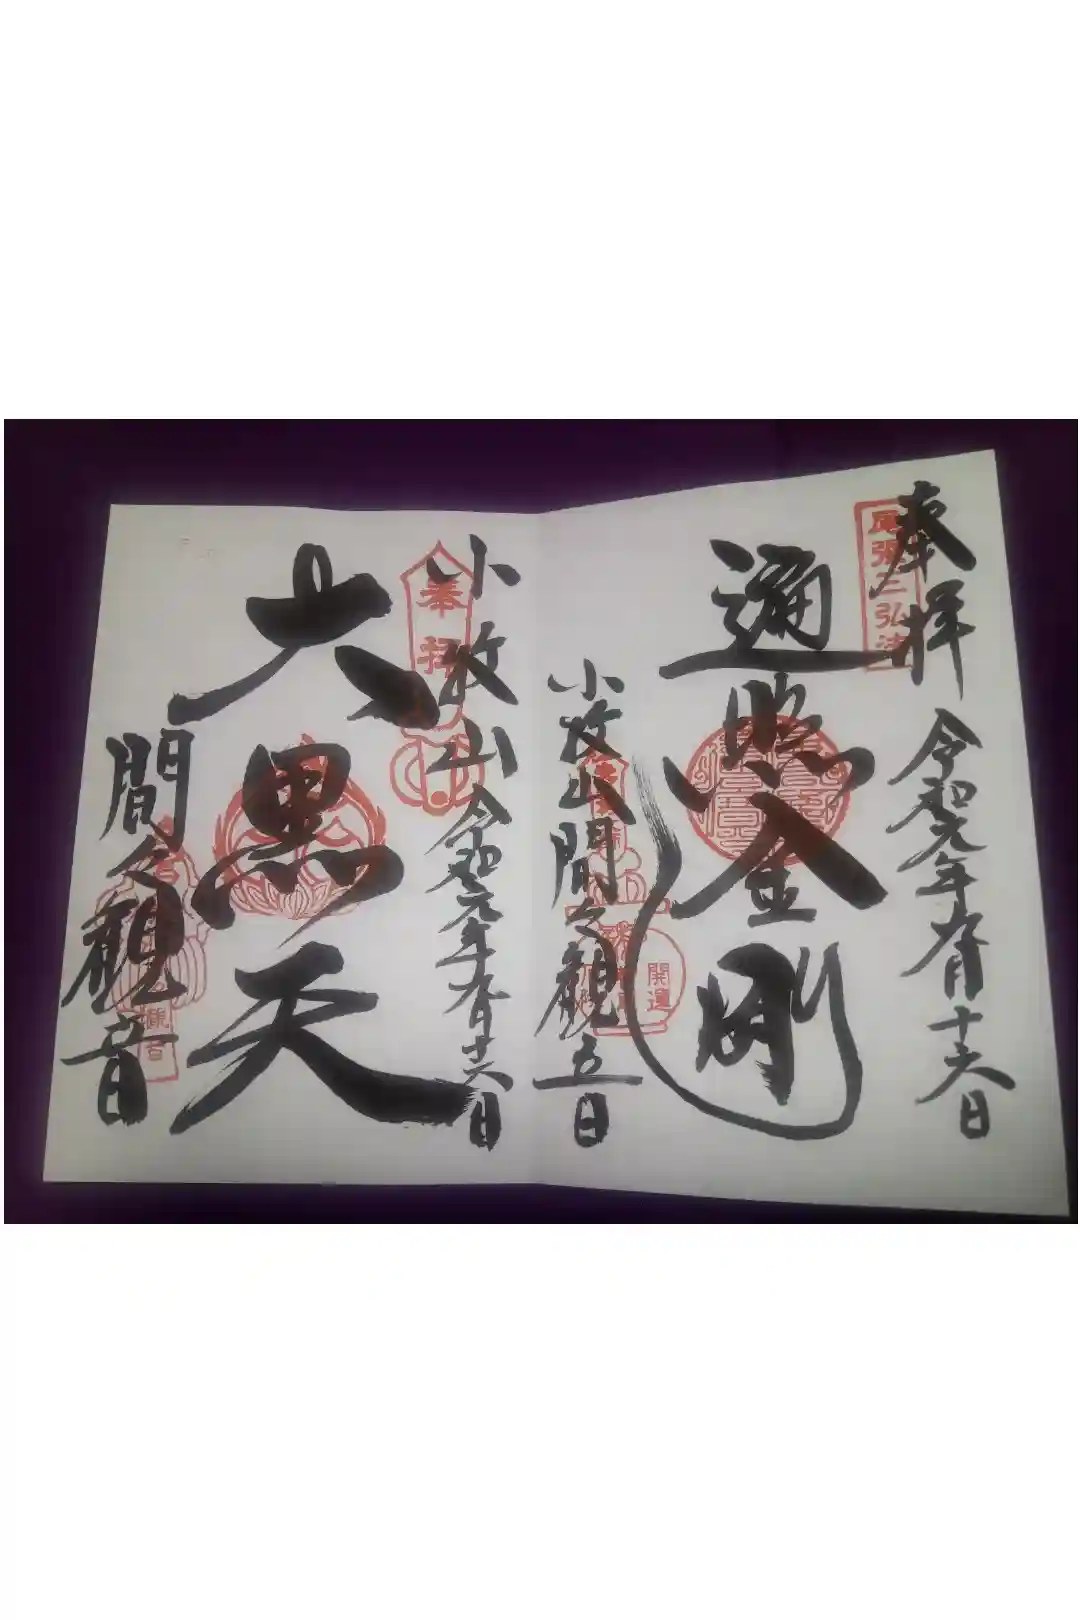 奉拝
令和元年九月十六日
尾張三弘法
遍照金剛
開運
小牧山間々観音
奉拝
小牧山
令和元年九月十六日
大黒天
間々観音
観音